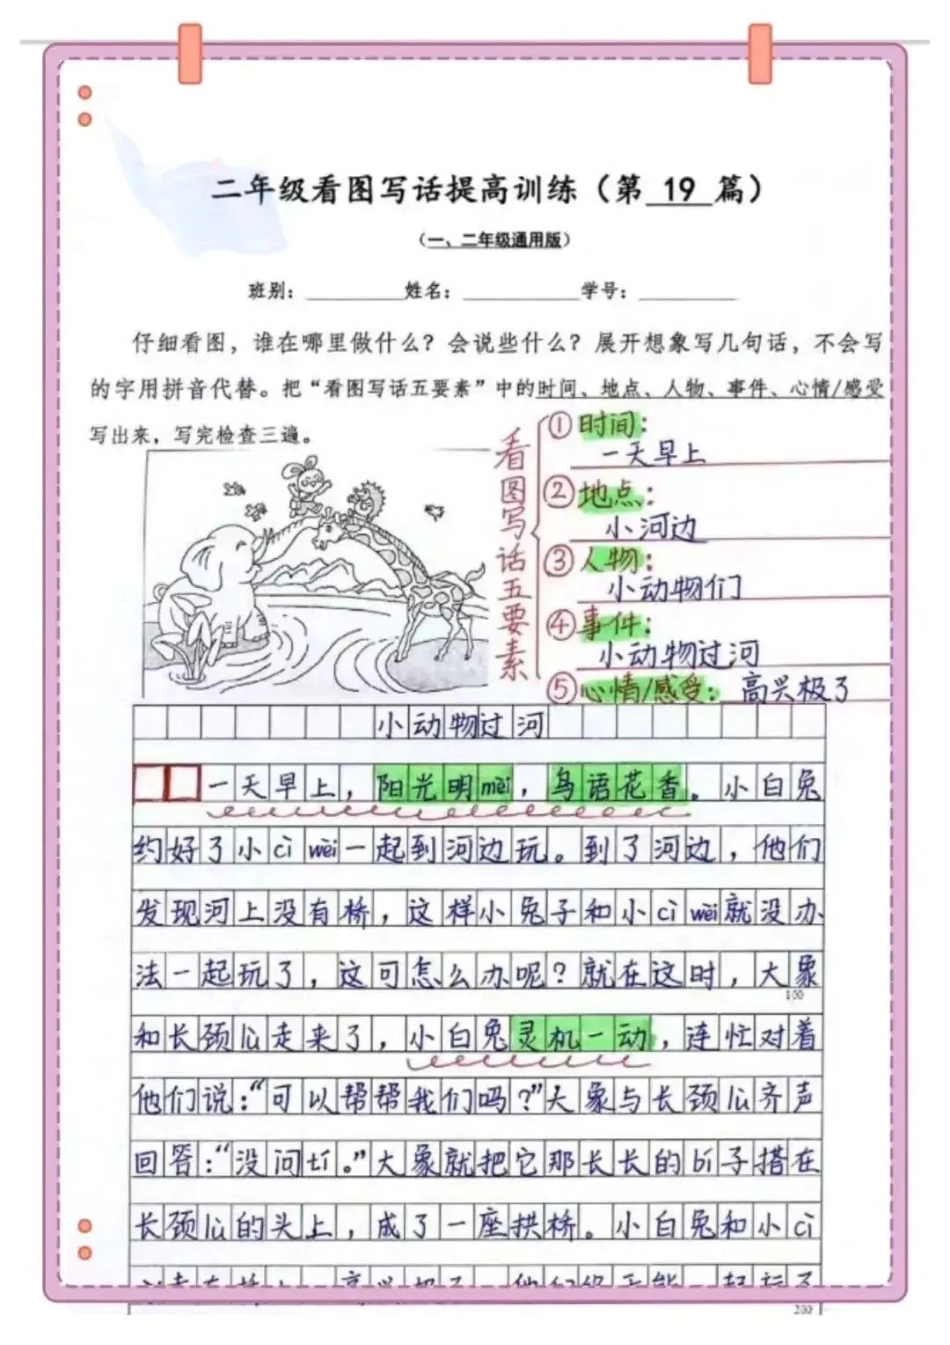 二年级看图写话提高训练（第 19 篇）
（一、二年级通用版）
班别：________姓名：________学号：________
仔细看图，谁在哪里做什么？会说些什么？展开想象写几句话，不会写
的字用拼音代替。把“看图写话五要素”中的时间、地点、人物、事件、心情/感受
写出来，写完检查三遍。
看图写话五要素
①时间：
一天早上
②地点：
小河边
③人物：
小动物们
④事件：
小动物过河
⑤心情/感受：高兴极了
小动物过河
一天早上，阳光明mèi，鸟语花香。小白兔
约好了小cì wèi一起到河边玩。到了河边，他们
发现河上没有桥，这样小兔子和小cì wèi就没办
法一起玩了，这可怎么办呢？就在这时，大象
100
和长颈lù走来了，小白兔灵机一动，连忙对着
他们说：“可以帮帮我们吗？”大象与长颈lù齐声
回答：“没问tí。”大象就把它那长长的bí子搭在
长颈lù的头上，成了一座拱桥。小白兔和小cì
200